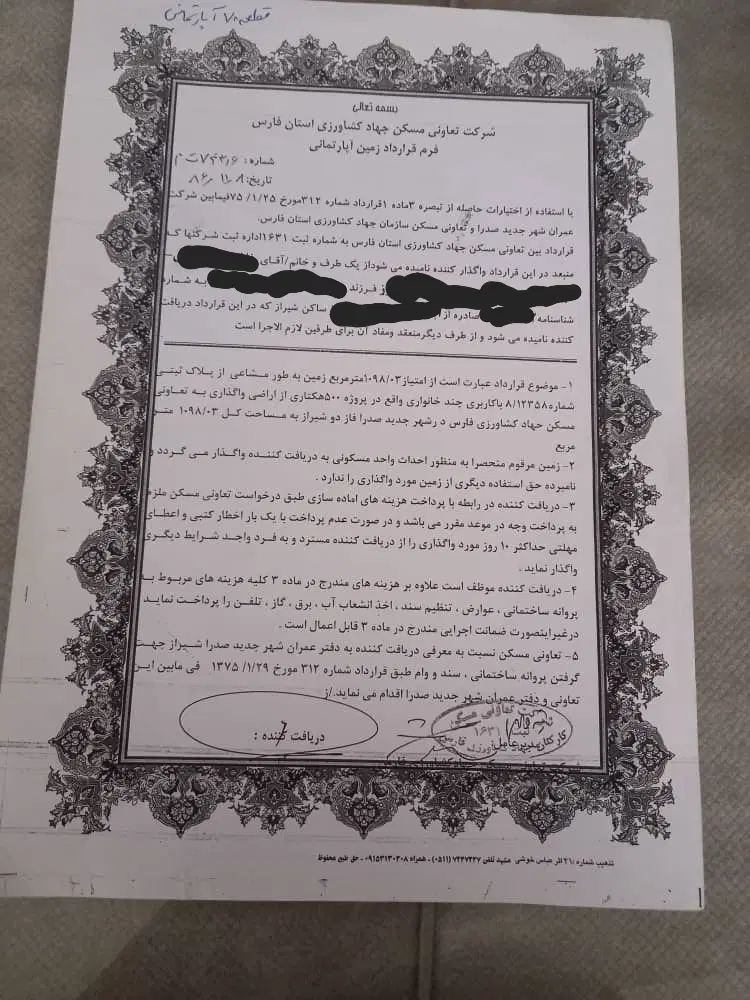 قطعه ۷۰ آپارتمانی
بسمه تعالی
شرکت تعاونی مسکن جهاد کشاورزی استان فارس
فرم قرارداد زمین آپارتمانی
شماره :
تاریخ: ۸۶/۱۱/۸
با استفاده از اختیارات حاصله از تبصره ۳ماده ۱قرارداد شماره ۳۱۲مورخ ۷۵/۱/۲۵فیمابین شرکت
عمران شهر جدید صدرا و تعاونی مسکن سازمان جهاد کشاورزی استان فارس.
قرارداد بین تعاونی مسکن جهاد کشاورزی استان فارس به شماره ثبت ۱۶۳۱اداره ثبت شرکتها ک
منبعد در این قرارداد واگذار کننده نامیده می شوداز یک طرف و خانم/آقای
فرزند به شماره
شناسنامه صادره از ساکن شیراز که در این قرارداد دریافت
کننده نامیده می شود و از طرف دیگرمنعقد ومفاد آن برای طرفین لازم الاجرا است
۱- موضوع قرارداد عبارت است از امتیاز۱۰۹۸/۰۳مترمربع زمین به طور مشاعی از پلاک ثبتی
شماره۸/۱۲۳۵۸ باکاربری چند خانواری واقع در پروژه ۵۰۰هکتاری از اراضی واگذاری به تعاونی
مسکن جهاد کشاورزی فارس د رشهر جدید صدرا فاز دو شیراز به مساحت کل ۱۰۹۸/۰۳ متر
مربع
۲- زمین مرقوم منحصرا به منظور احداث واحد مسکونی به دریافت کننده واگذار می گردد و
نامبرده حق استفاده دیگری از زمین مورد واگذاری را ندارد .
۳- دریافت کننده در رابطه با پرداخت هزینه های اماده سازی طبق درخواست تعاونی مسکن ملزم
به پرداخت وجه در موعد مقرر می باشد و در صورت عدم پرداخت با یک بار اخطار کتبی و اعطای
مهلتی حداکثر ۱۰ روز مورد واگذاری را از دریافت کننده مسترد و به فرد واجد شرایط دیگری
واگذار نماید .
۴- دریافت کننده موظف است علاوه بر هزینه های مندرج در ماده ۳ کلیه هزینه های مربوط به
پروانه ساختمانی ، عوارض ، تنظیم سند ، اخذ انشعاب آب ، برق ، گاز ، تلفن را پرداخت نماید
درغیراینصورت ضمانت اجرایی مندرج در ماده ۳ قابل اعمال است .
۵- تعاونی مسکن نسبت به معرفی دریافت کننده به دفتر عمران شهر جدید صدرا شیراز جهت
گرفتن پروانه ساختمانی ، سند و وام طبق قرارداد شماره ۳۱۲ مورخ ۱۳۷۵/۱/۲۹ فی مابین این
تعاونی و دفتر عمران شهر جدید صدرا اقدام می نماید./ز
دریافت کننده :
مدیرعامل
شرکت تعاونی مسکن
۱۶۳۱
تذهیب شماره ۲۱۰ اثر عباس خوشی مشهد تلفن ۷۲۴۷۴۲۷ (۰۵۱۱) - همراه ۰۹۱۵۳۱۳۰۳۰۸ - حق طبع محفوظ